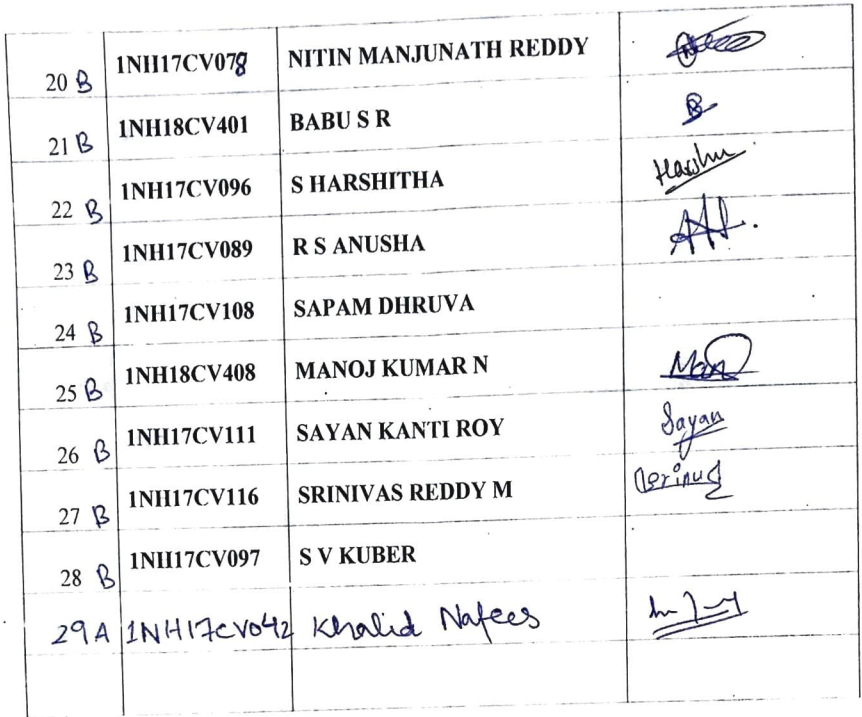 20 B 1NH17CV078 NITIN MANJUNATH REDDY
21 B 1NH18CV401 BABU S R B
22 B 1NH17CV096 S HARSHITHA Harshu
23 B 1NH17CV089 R S ANUSHA
24 B 1NH17CV108 SAPAM DHRUVA
25 B 1NH18CV408 MANOJ KUMAR N Man
26 B 1NH17CV111 SAYAN KANTI ROY Sayan
27 B 1NH17CV116 SRINIVAS REDDY M
28 B 1NH17CV097 S V KUBER
29 A 1NH17CV042 Khalid Nafees